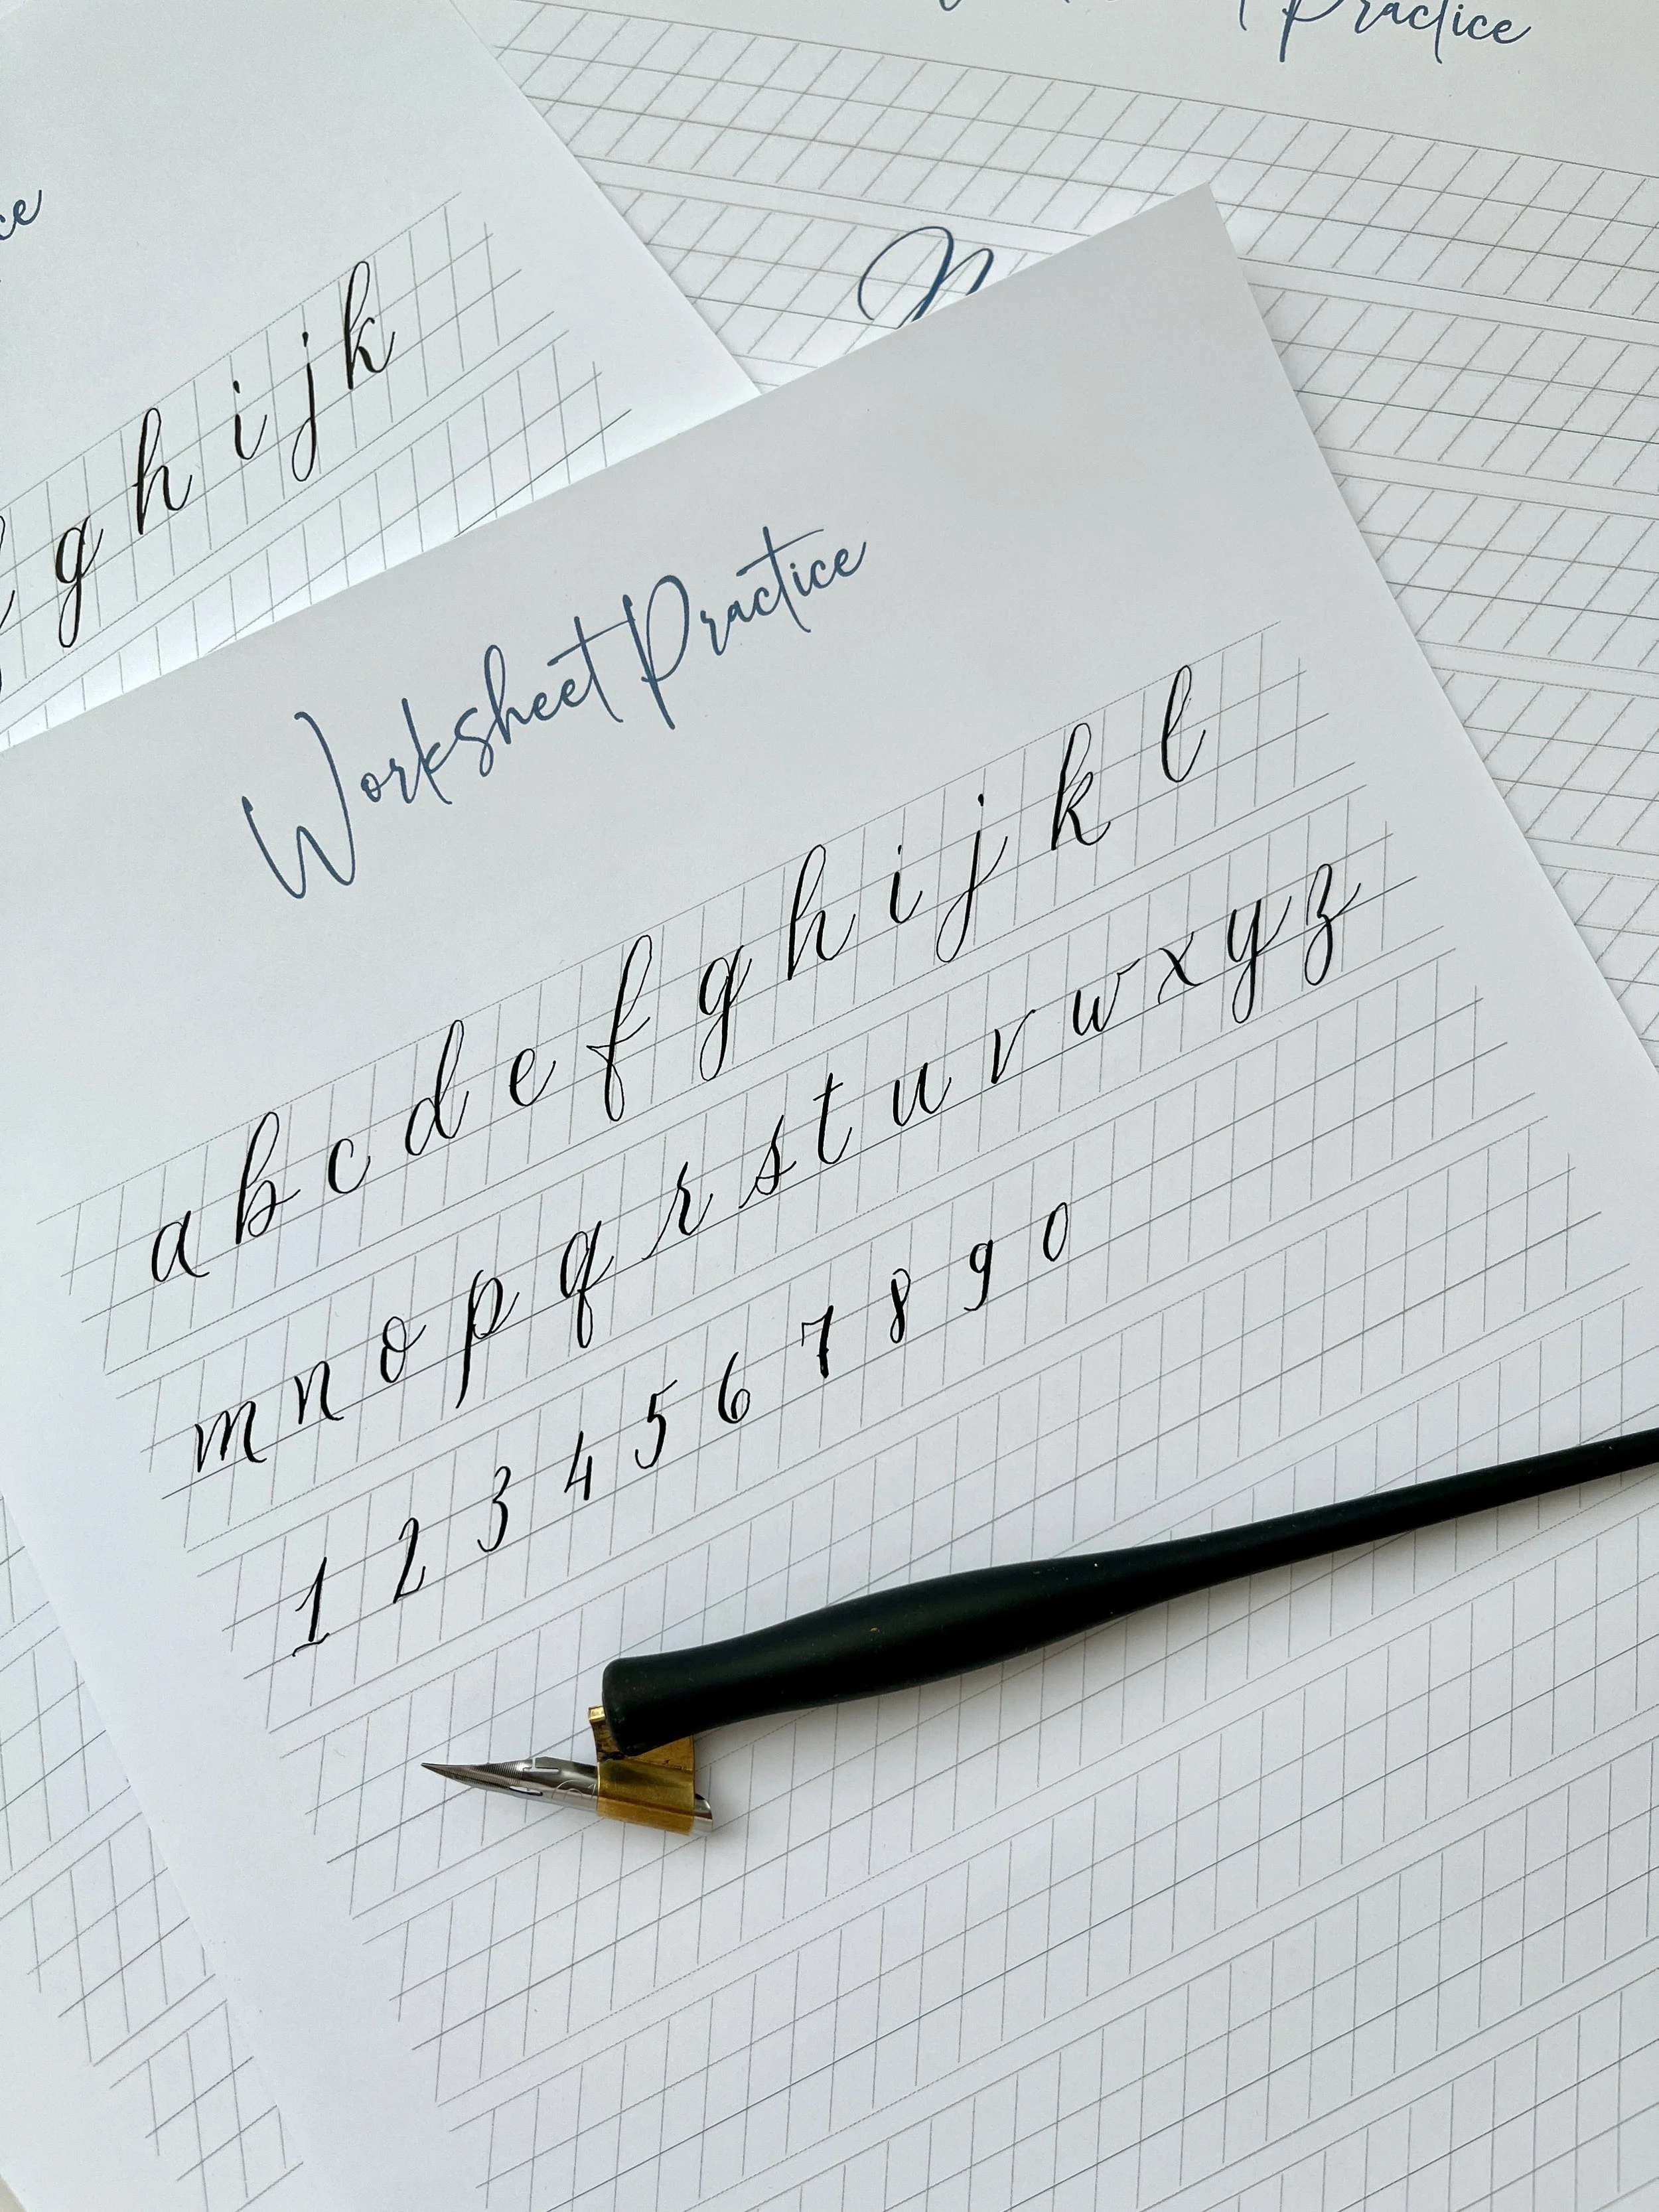 Practice
ce
g h i j k
Worksheet Practice
a b c d e f g h i j k l
m n o p q r s t u v w x y z
1 2 3 4 5 6 7 8 9 0